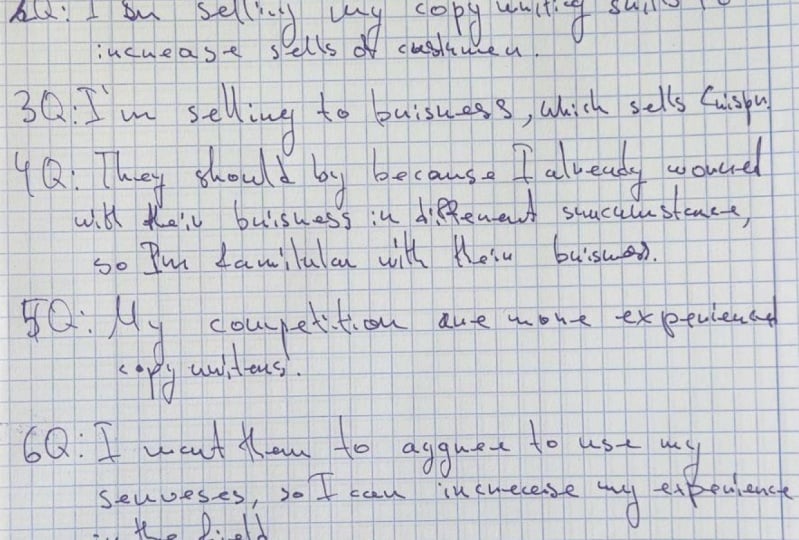 2Q: I am selling my copywriting skills to
increase sells of custumer.
3Q: I'm selling to buisness, which sells
4Q: They should by because I already worked
with their buisness in different
so I'm with their buisness.
5Q: My competition are more experienced
copywriters.
6Q: I want them to aggree to use my
serveses, so I can increcese my experience
in the field